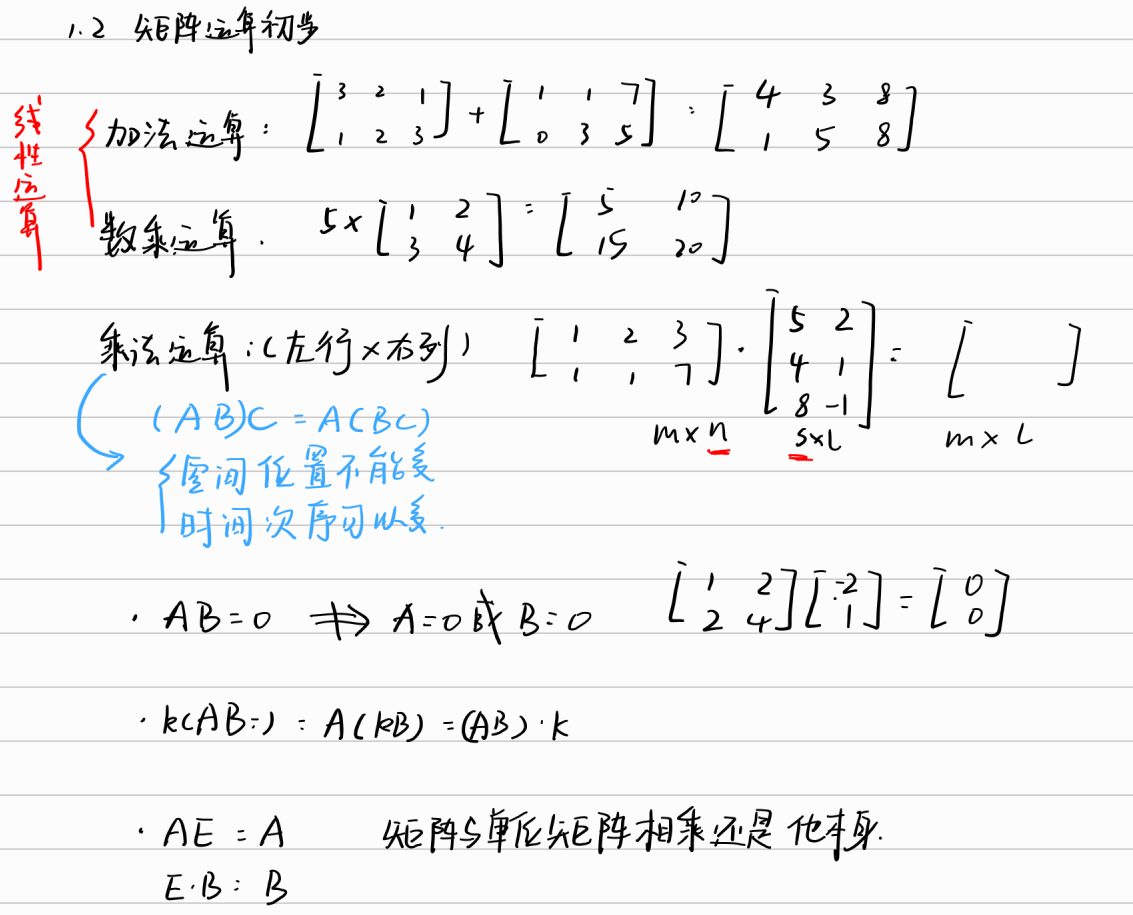 1.2 矩阵运算初步
线性运算
加法运算： [3 2 1; 1 2 3] + [1 1 7; 0 3 5] = [4 3 8; 1 5 8]
数乘运算. 5×[1 2; 3 4] = [5 10; 15 20]
乘法运算：(左行×右列) [1 2 3; 1 1 7]·[5 2; 4 1; 8 -1] = [ ]
m×n s×L m×L
(AB)C = A(BC)
空间位置不能变
时间次序可以变.
· AB=0 ⇏ A=0或B=0 [1 2; 2 4][-2; 1] = [0; 0]
· k(AB=) = A(kB) = (AB)·k
· AE = A 矩阵与单位矩阵相乘还是他本身.
E·B = B